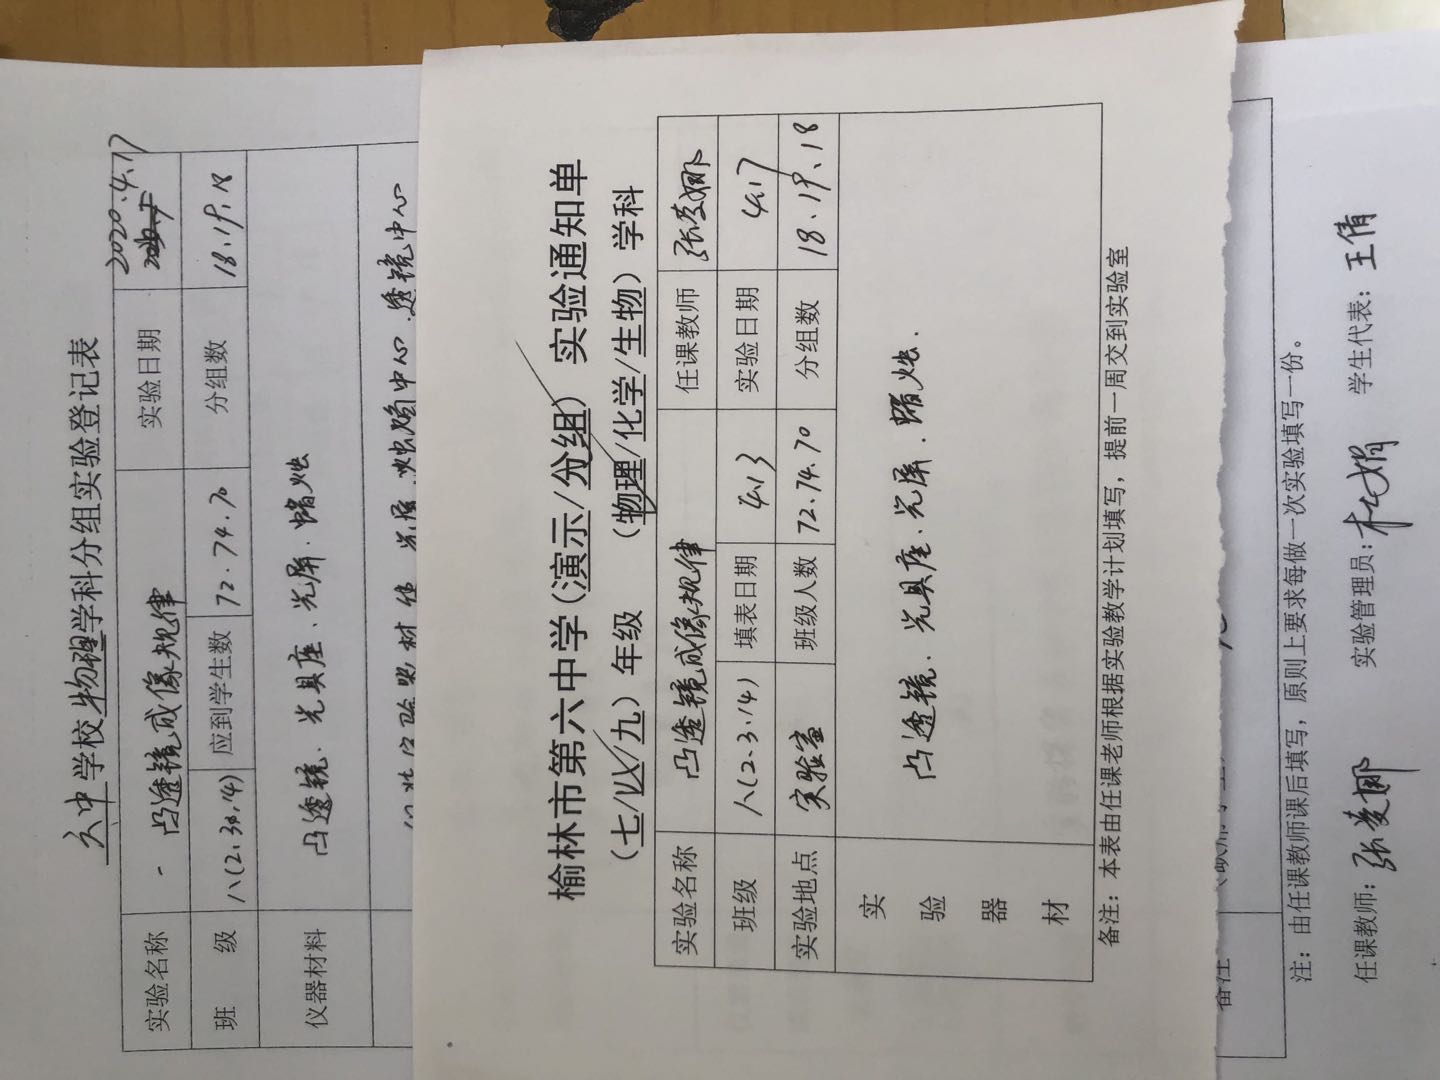 六中学校物理学科分组实验登记表
实验名称 凸透镜成像规律 实验日期 2020.4.17
班 级 八(2.3.14) 应到学生数 72.74.70 分组数 18.19.18
仪器材料 凸透镜、光具座、光屏、蜡烛
光屏 烛焰中心 透镜中心
榆林市第六中学(演示/分组)实验通知单
(七/八/九)年级 (物理/化学/生物)学科
实验名称 凸透镜成像规律 任课教师
班级 八(2.3.14) 填表日期 4.13 实验日期 4.17
实验地点 实验室 班级人数 72.74.70 分组数 18.19.18
实验器材 凸透镜、光具座、光屏、蜡烛.
备注:本表由任课老师根据实验教学计划填写,提前一周交到实验室
备注
注:由任课教师课后填写,原则上要求每做一次实验填写一份。
任课教师: 实验管理员: 学生代表:王倩